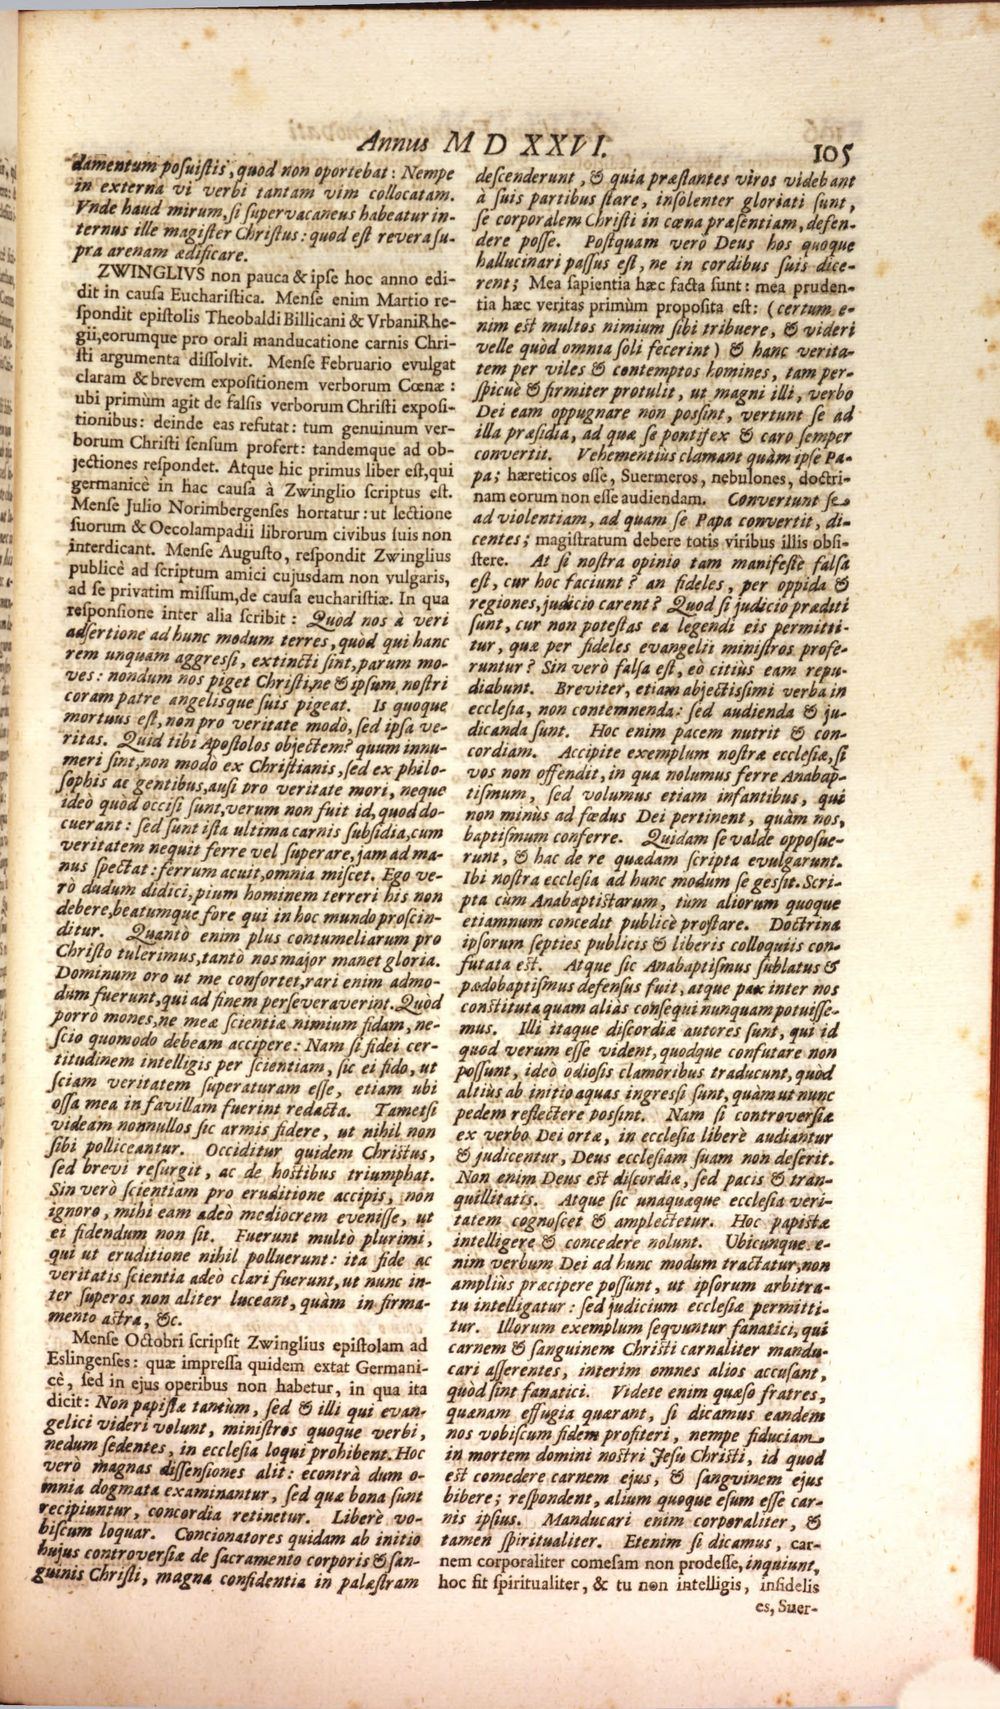 Annus M D XXVI.
105
damentum posuistis, quod non oportebat: Nempe
in externa vi verbi tantam vim collocatam.
Vnde haud mirum, si supervacaneus habeatur in-
ternus ille magister Christus: quod est revera su-
pra arenam ædificare.
ZWINGLIVS non pauca & ipse hoc anno edi-
dit in causa Eucharistica. Mense enim Martio re-
spondit epistolis Theobaldi Billicani & Vrbani Rhe-
gii, eorumque pro orali manducatione carnis Chri-
sti argumenta dissolvit. Mense Februario evulgat
claram & brevem expositionem verborum Cœnæ:
ubi primùm agit de falsis verborum Christi exposi-
tionibus: deinde eas refutat: tum genuinum ver-
borum Christi sensum profert: tandemque ad ob-
jectiones respondet. Atque hic primus liber est, qui
germanicè in hac causa à Zwinglio scriptus est.
Mense Julio Norimbergenses hortatur: ut lectione
suorum & Oecolampadii librorum civibus suis non
interdicant. Mense Augusto, respondit Zwinglius
publicè ad scriptum amici cujusdam non vulgaris,
ad se privatim missum, de causa eucharistiæ. In qua
responsione inter alia scribit: Quod nos à veri
adsertione ad hunc modum terres, quòd qui hanc
rem unquam aggressi, extincti sint, parum mo-
ves: nondum nos piget Christi, ne & ipsum nostri
coram patre angelisque suis pigeat. Is quoque
mortuus est, non pro veritate modò, sed ipsa ve-
ritas. Quid tibi Apostolos objectem? quum innu-
meri sint, non modò ex Christianis, sed ex philo-
sophis ac gentibus, ausi pro veritate mori, neque
ideò quòd occisi sunt, verum non fuit id, quod do-
cuerant: sed sunt ista ultima carnis subsidia, cum
veritatem nequit ferre vel superare, jam ad ma-
nus spectat: ferrum acuit, omnia miscet. Ego ve-
rò dudum didici, pium hominem terreri his non
debere, beatumque fore qui in hoc mundo proscin-
ditur. Quantò enim plus contumeliarum pro
Christo tulerimus, tantò nos major manet gloria.
Dominum oro ut me confortet, rari enim admo-
dum fuerunt, qui ad finem perseveraverint. Quòd
porrò mones, ne meæ scientiæ nimium fidam, ne-
scio quomodo debeam accipere: Nam si fidei cer-
titudinem intelligis per scientiam, sic ei fido, ut
sciam veritatem superaturam esse, etiam ubi
ossa mea in favillam fuerint redacta. Tametsi
videam nonnullos sic armis fidere, ut nihil non
sibi polliceantur. Occiditur quidem Christus,
sed brevi resurgit, ac de hostibus triumphat.
Sin verò scientiam pro eruditione accipis, non
ignoro, mihi eam adeò mediocrem evenisse, ut
ei fidendum non sit. Fuerunt multò plurimi,
qui ut eruditione nihil polluerunt: ita fide ac
veritatis scientia adeò clari fuerunt, ut nunc in-
ter superos non aliter luceant, quàm in firma-
mento astra, &c.
Mense Octobri scripsit Zwinglius epistolam ad
Eslingenses: quæ impressa quidem extat Germani-
cè, sed in ejus operibus non habetur, in qua ita
dicit: Non papistæ tantum, sed & illi qui evan-
gelici videri volunt, ministros quoque verbi,
nedum sedentes, in ecclesia loqui prohibent. Hoc
verò magnas dissensiones alit: econtrà dum o-
mnia dogmata examinantur, sed quæ bona sunt
recipiuntur, concordia retinetur. Liberè vo-
biscum loquar. Concionatores quidam ab initio
hujus controversiæ de sacramento corporis & san-
guinis Christi, magna confidentia in palæstram
descenderunt, & quia præstantes viros videbant
à suis partibus stare, insolenter gloriati sunt,
se corporalem Christi in cœna præsentiam, defen-
dere posse. Postquam verò Deus hos quoque
hallucinari passus est, ne in cordibus suis dice-
rent; Mea sapientia hæc facta sunt: mea pruden-
tia hæc veritas primùm proposita est: (certum e-
nim est multos nimium sibi tribuere, & videri
velle quòd omnia soli fecerint) & hanc verita-
tem per viles & contemptos homines, tam per-
spicuè & firmiter protulit, ut magni illi, verbo
Dei eam oppugnare non possint, vertunt se ad
illa præsidia, ad quæ se pontifex & caro semper
convertit. Vehementiùs clamant quàm ipse Pa-
pa; hæreticos esse, Suermeros, nebulones, doctri-
nam eorum non esse audiendam. Convertunt se
ad violentiam, ad quam se Papa convertit, di-
centes; magistratum debere totis viribus illis obsi-
stere. At si nostra opinio tam manifestè falsa
est, cur hoc faciunt? an fideles, per oppida &
regiones, judicio carent? Quod si judicio præditi
sunt, cur non potestas ea legendi eis permitti-
tur, quæ per fideles evangelii ministros profe-
runtur? Sin verò falsa est, eò citiùs eam repu-
diabunt. Breviter, etiam abjectissimi verba in
ecclesia, non contemnenda: sed audienda & ju-
dicanda sunt. Hoc enim pacem nutrit & con-
cordiam. Accipite exemplum nostræ ecclesiæ, si
vos non offendit, in qua nolumus ferre Anabap-
tismum, sed volumus etiam infantibus, qui
non minùs ad fœdus Dei pertinent, quàm nos,
baptismum conferre. Quidam se valde opposue-
runt, & hac de re quædam scripta evulgarunt.
Ibi nostra ecclesia ad hunc modum se gessit. Scri-
pta cùm Anabaptistarum, tùm aliorum quoque
etiamnum concedit publicè prostare. Doctrina
ipsorum septies publicis & liberis colloquiis con-
futata est. Atque sic Anabaptismus sublatus &
pædobaptismus defensus fuit, atque pax inter nos
constituta quam aliàs consequi nunquam potuisse-
mus. Illi itaque discordiæ autores sunt, qui id
quod verum esse vident, quodque confutare non
possunt, ideò odiosis clamoribus traducunt, quòd
altiùs ab initio aquas ingressi sunt, quàm ut nunc
pedem reflectere possint. Nam si controversiæ
ex verbo Dei ortæ, in ecclesia liberè audiantur
& judicentur, Deus ecclesiam suam non deserit.
Non enim Deus est discordiæ, sed pacis & tran-
quillitatis. Atque sic unaquæque ecclesia veri-
tatem cognoscet & amplectetur. Hoc papistæ
intelligere & concedere nolunt. Ubicunque e-
nim verbum Dei ad hunc modum tractatur, non
ampliùs præcipere possunt, ut ipsorum arbitra-
tu intelligatur: sed judicium ecclesiæ permitti-
tur. Illorum exemplum seqvuntur fanatici, qui
carnem & sanguinem Christi carnaliter mandu-
cari asserentes, interim omnes alios accusant,
quòd sint fanatici. Videte enim quæso fratres,
quænam effugia quærant, si dicamus eandem
nos vobiscum fidem profiteri, nempe fiduciam
in mortem domini nostri Jesu Christi, id quod
est comedere carnem ejus, & sangvinem ejus
bibere; respondent, alium quoque esum esse car-
nis ipsius. Manducari enim corporaliter, &
tamen spiritualiter. Etenim si dicamus, car-
nem corporaliter comesam non prodesse, inquiunt,
hoc fit spiritualiter, & tu non intelligis, infidelis
es, Suer-